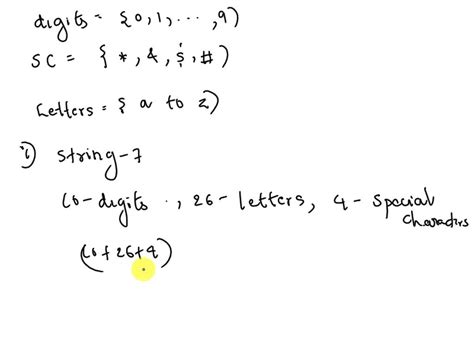 digits = {0,1,...,9}
SC = {*,&,$,#}
Letters = { a to z}
i) string-7
10-digits ., 26-letters, 4-special characters
(10+26+4)